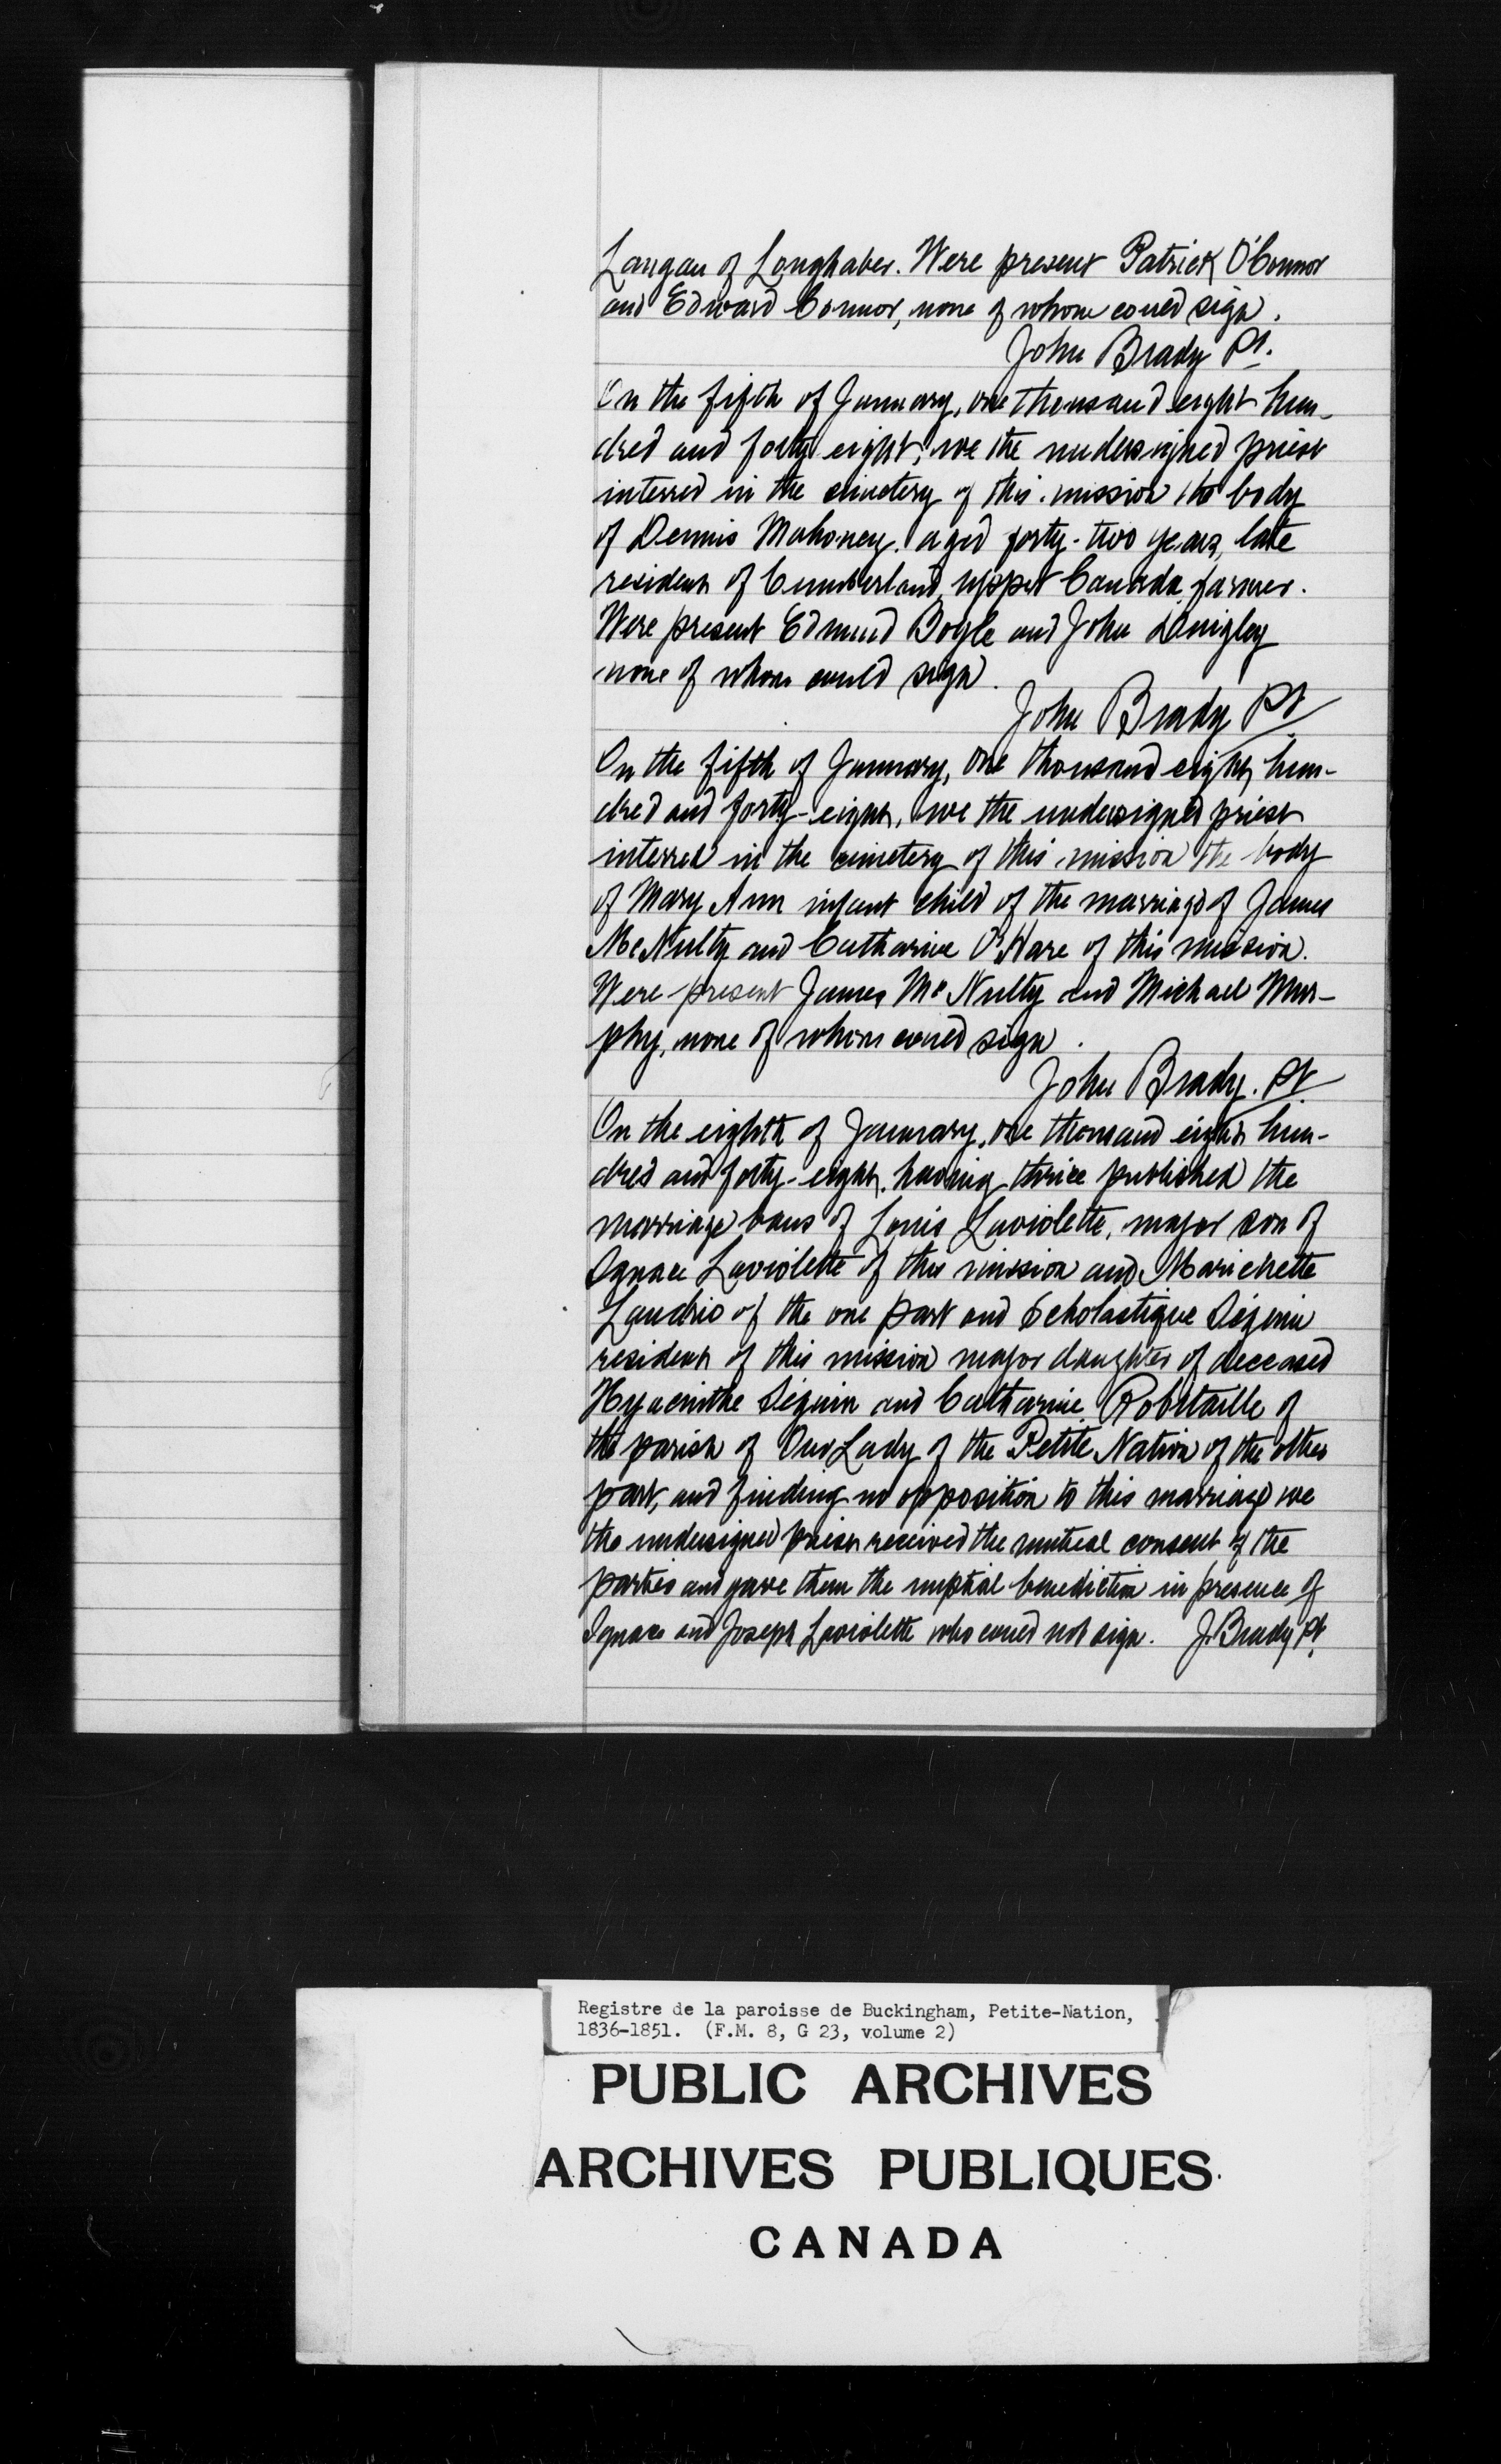 Langan of Longhaber. Were present Patrick O'Connor
and Edward Connor, none of whom could sign.
John Brady Pt.
On the fifth of January, one thousand eight hun-
dred and forty eight, we the undersigned priest
interred in the cimetery of this mission the body
of Dennis Mahoney, aged forty-two years, late
resident of Cumberland, Upper Canada, farmer.
Were present Edmund Boyle and John Quigley
none of whom could sign.
John Brady Pt
On the fifth of January, one thousand eight hun-
dred and forty-eight, we the undersigned priest
interred in the cimetery of this mission the body
of Mary Ann infant child of the marriage of James
McNulty and Catharine O'Hare of this mission.
Were present James McNulty and Michael Mur-
phy, none of whom could sign.
John Brady. Pt
On the eighth of January, one thousand eight hun-
dred and forty-eight, having thrice published the
marriage bans of Louis Laviolette, major son of
Ignace Laviolette of this mission and Marichette
Landrio of the one part and Scholastique Séguin
resident of this mission major daughter of deceased
Hyacinthe Séguin and Catharine Robitaille of
the parish of Our Lady of the Petite Nation of the other
part, and finding no opposition to this marriage we
the undersigned priest received the mutual consent of the
parties and gave them the nuptial benediction in presence of
Ignace and Joseph Laviolette who could not sign. J. Brady Pt.
Registre de la paroisse de Buckingham, Petite-Nation,
1836-1851. (F.M. 8, G 23, volume 2)
PUBLIC ARCHIVES
ARCHIVES PUBLIQUES
CANADA